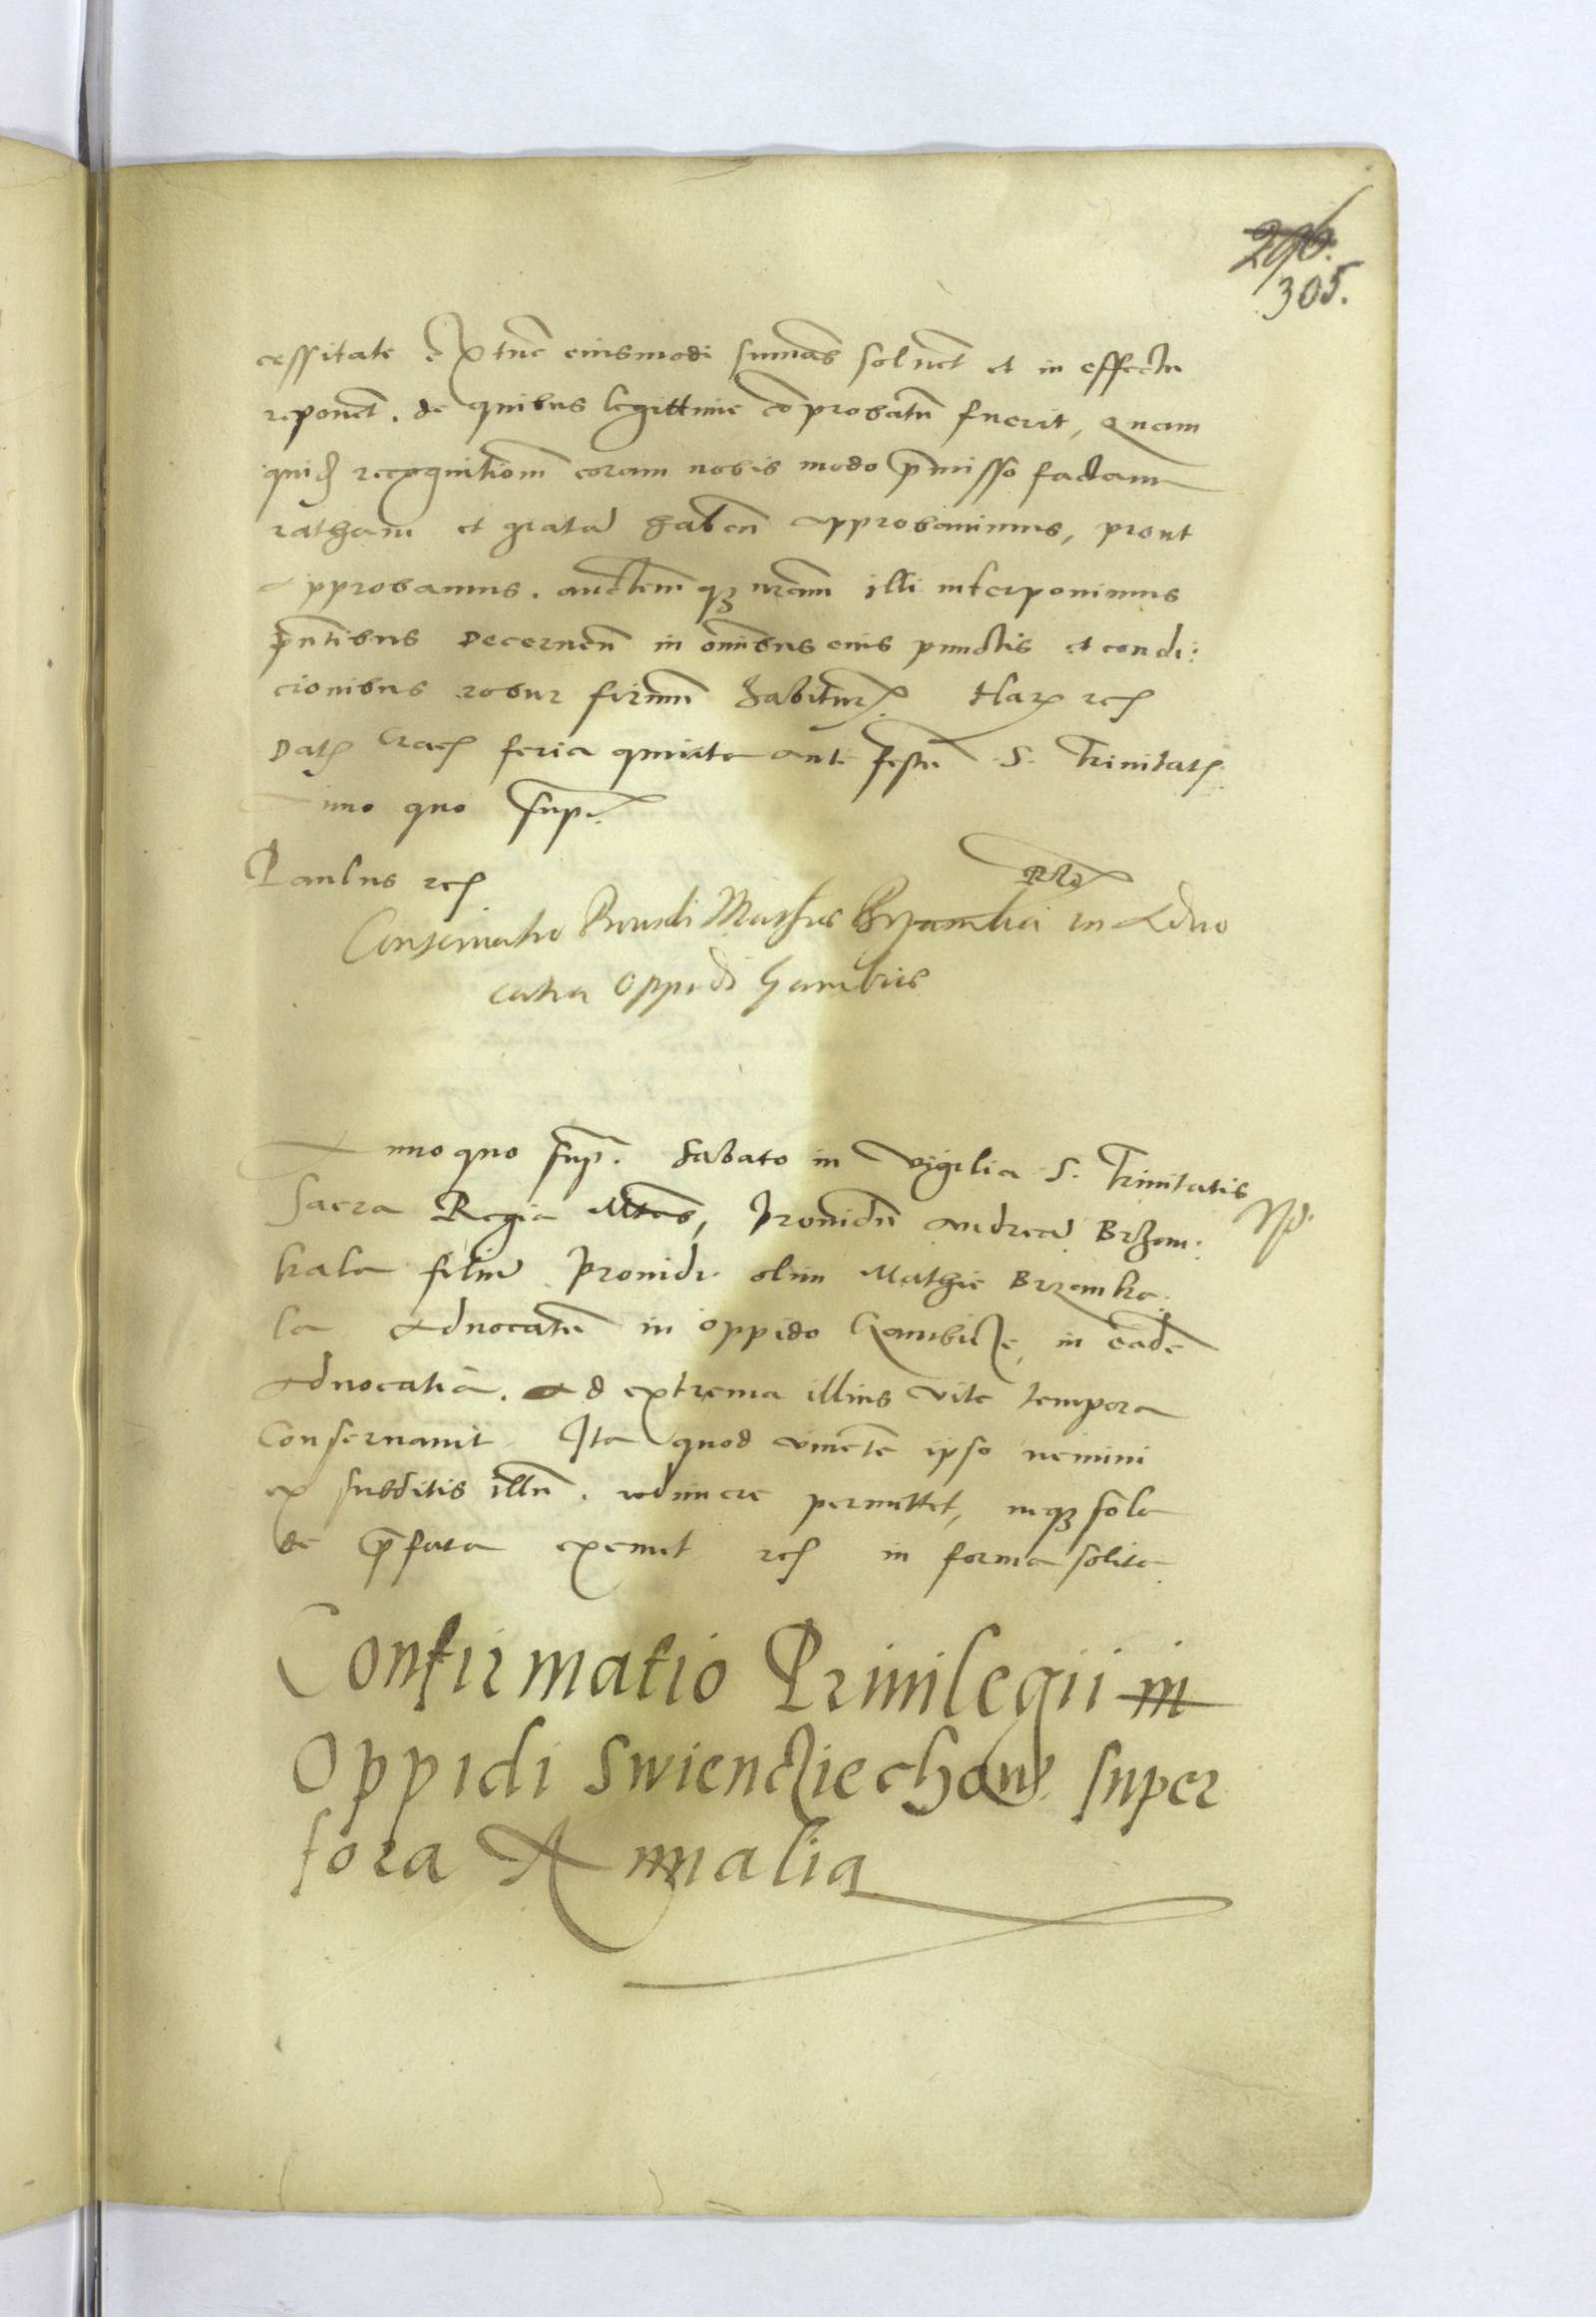 296.
305.
cessitate extūc eiusmodi sum̄as soluēt et in effectu
reponēt. de quibus legittime cō probatū fuerit, Quam
quid recognitionē coram nobis modo p̄misso factam
ratham et gratā haben̄ approbauimus, prout
Approbamus. auctēmqȝ nrām illi interponimus
pn̄tibus Decernen̄ in om̄ibus eius punctis et condi:
cionibus robur firmū habituȓ. Harȝ rc̄
Dat̄ Crac̄ feria quinta ante festū S. Trinitat̄
Anno quo sup̄.
Paulus rc̄
Conseruatio Prouidi Mathie Brzamkai in Aduo
catia Oppidi Gambice
Anno quo sup̄. Sabato in Vigilia S. Trinitatis
Sacra Regia Mtas, Prouidū andreā Brzam:
kala filiū Prouidi olim Mathie Brzamka
la Aduocatū in oppido Gambicze, in eādē
Aduocatiā. Ad extrema illius vite tempora
Conseruauit Ita quod viuēte ipso nemini
ex subditis illū. redimere permittet, neqȝ sola
de p̄fata eximet rc̄ in forma solita
Confirmatio Priuilegii in
Oppidi Swiencziechow super
fora Annalia